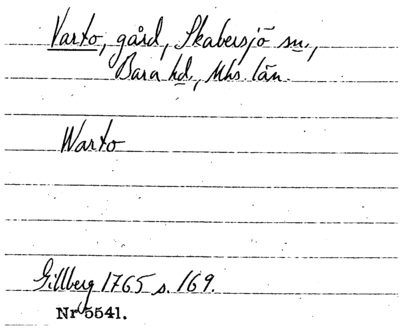 Varto, gård, Skabersjö sn.,
Bara hd., Mhs. län.
Warto
Gillberg 1765 s. 169.
Nr 5541.